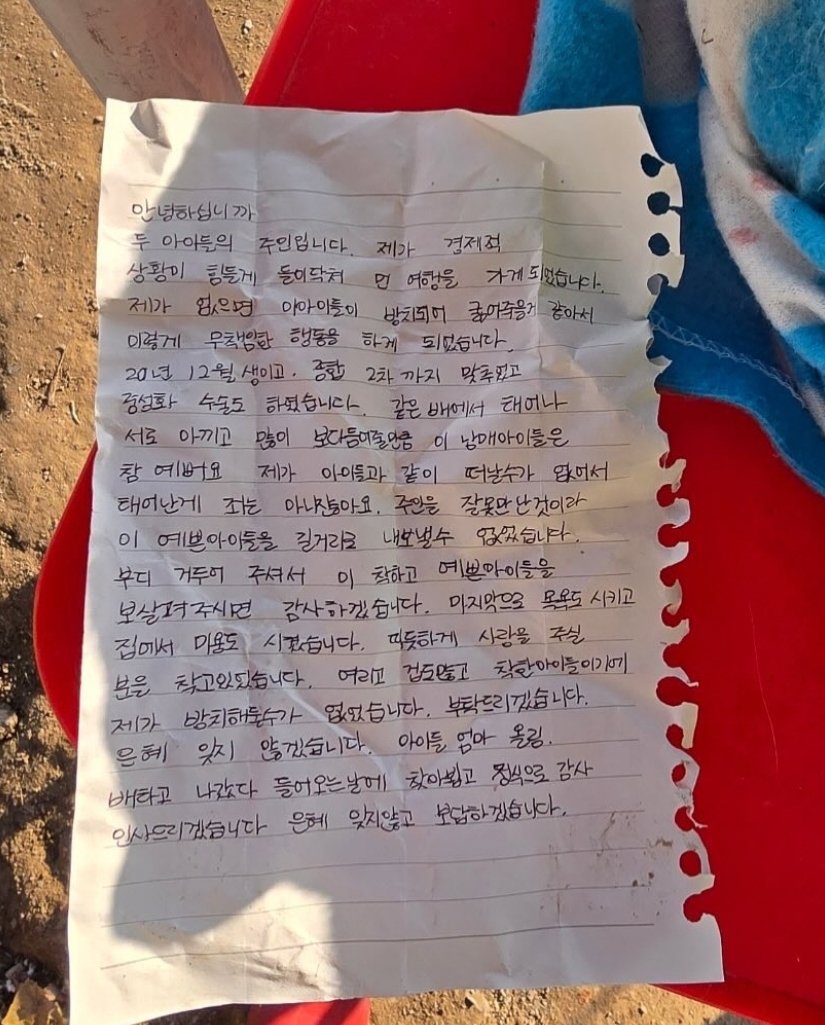 안녕하십니까
두 아이들의 주인입니다. 제가 경제적
상황이 힘들게 들이닥쳐 먼 여행을 가게 되었습니다.
제가 없으면 이아이들이 방치되어 굶어죽을게 같아서
이렇게 무책임한 행동을 하게 되었습니다.
20년 12월 생이고. 종합 2차 까지 맞추었고
중성화 수술도 하였습니다. 같은 배에서 태어나
서로 아끼고 많이 보다듬어줄만큼 이 남매아이들은
참 예뻐요 제가 아이들과 같이 떠날수가 없어서
태어난게 죄는 아니잖아요. 주인을 잘못만난것이라
이 예쁜아이들을 길거리로 내보낼수 없었습니다.
부디 거두어 주셔서 이 착하고 예쁜아이들을
보살펴주시면 감사하겠습니다. 마지막으로 목욕도 시키고
집에서 미용도 시켰습니다. 따듯하게 사랑을 주실
분을 찾고있었습니다. 여리고 겁도많고 착한아이들이기에
제가 방치해둘수가 없었습니다. 부탁드리겠습니다.
은혜 잊지 않겠습니다. 아이들 엄마 올림.
배타고 나갔다 들어오는날에 찾아뵙고 정식으로 감사
인사드리겠습니다 은혜 잊지않고 보답하겠습니다.